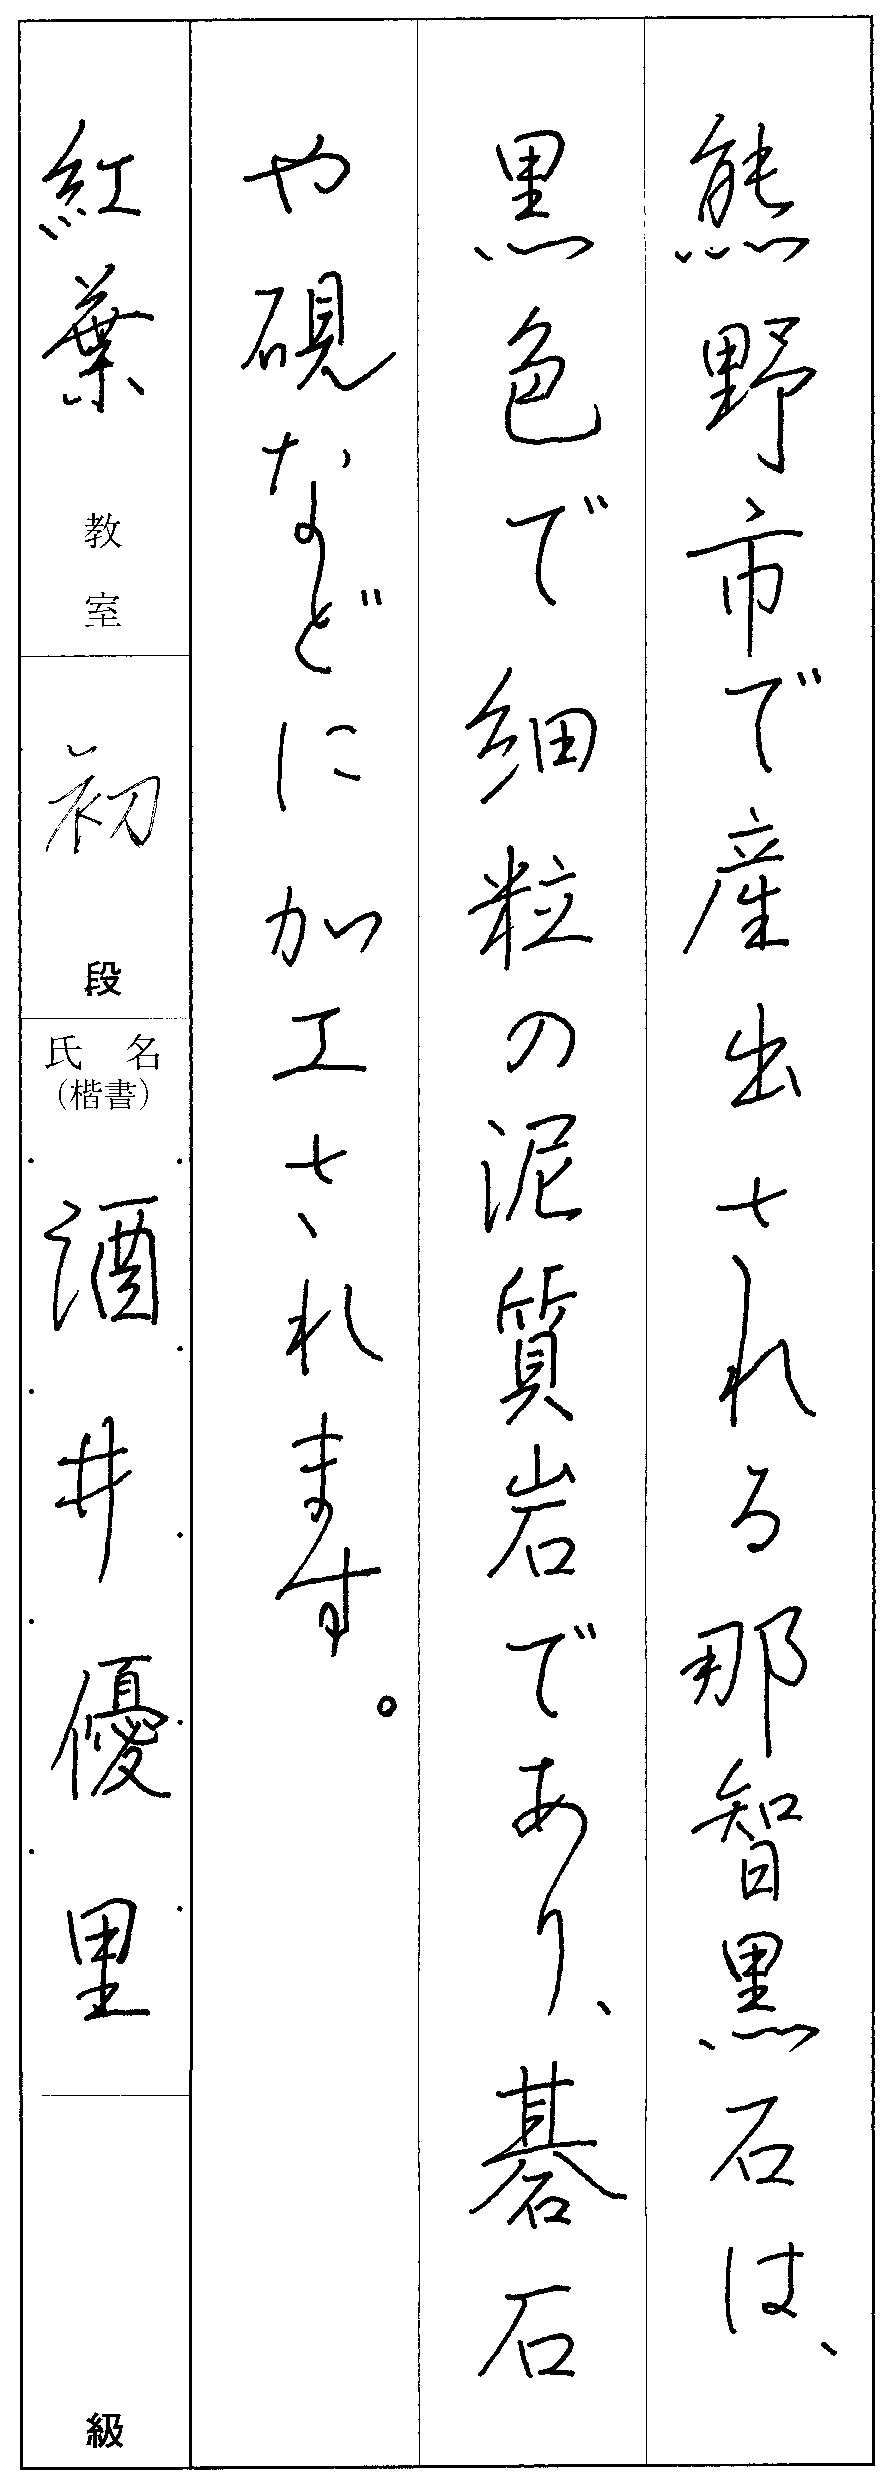 熊野市で産出される那智黒石は、
黒色で細粒の泥質岩であり、碁石
や硯などに加工されます。
紅葉教室
初段
氏名
(楷書)
酒井優里
級